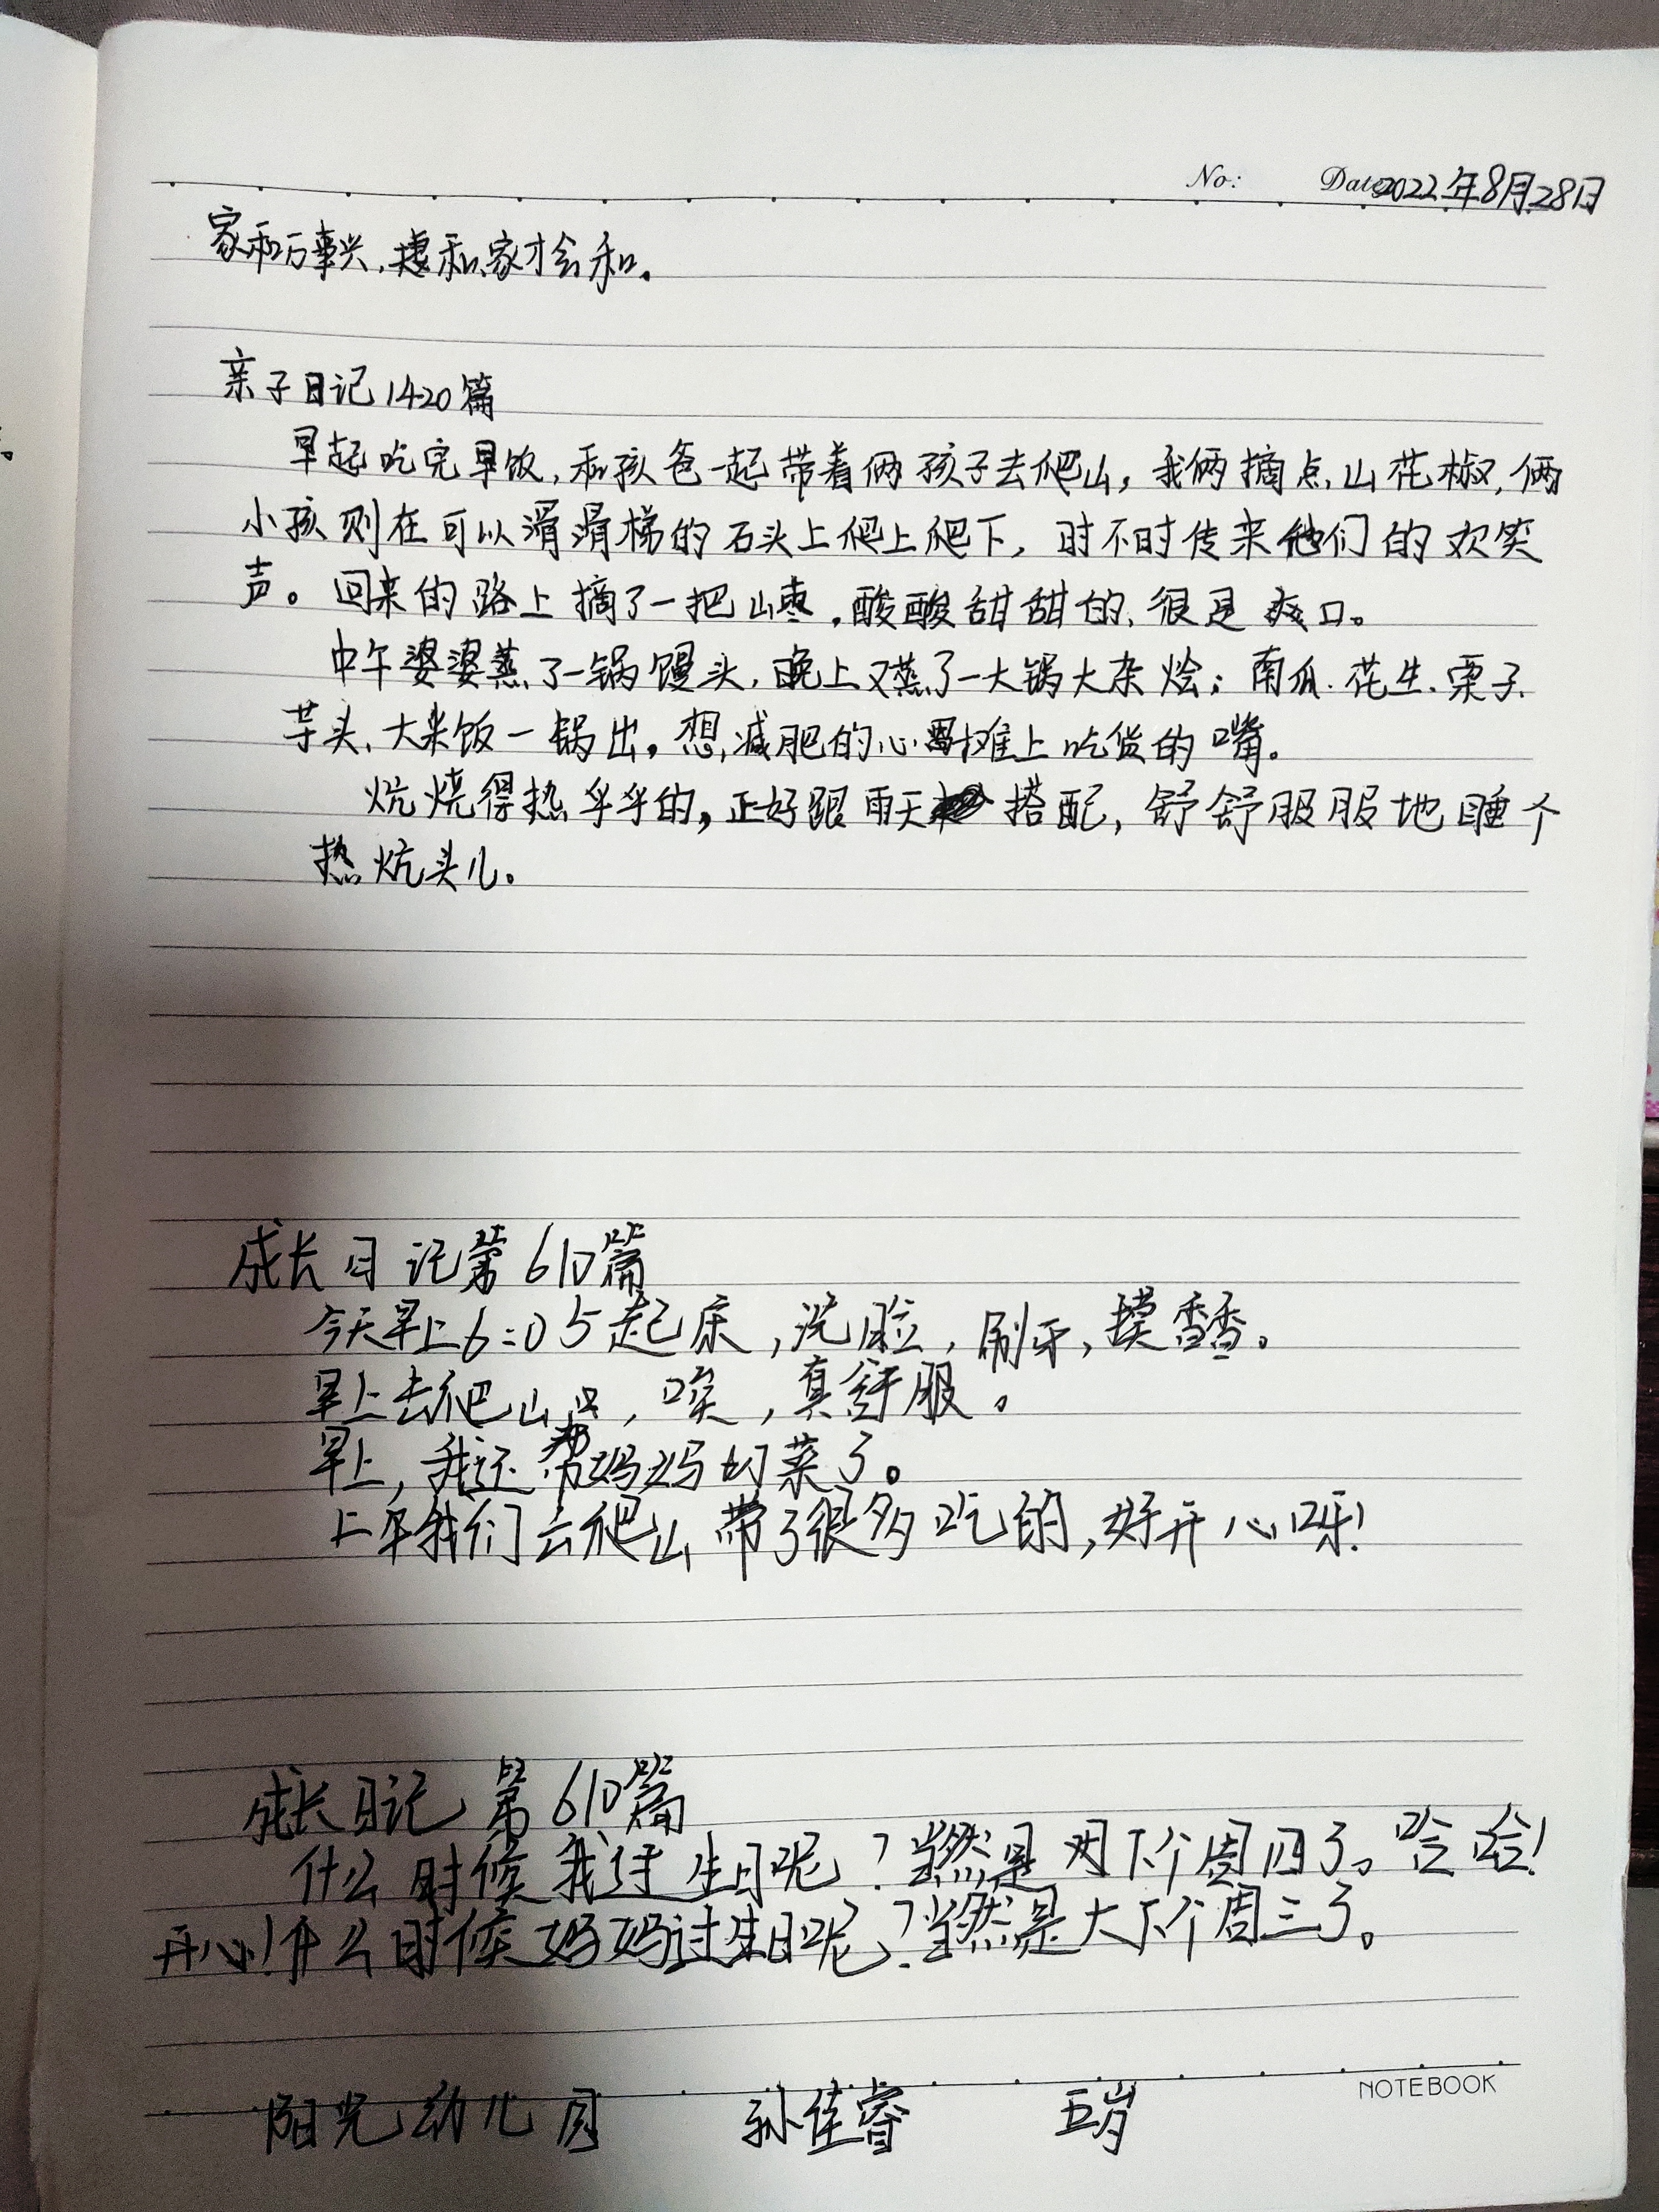 No: Date 2022年8月28日
家和万事兴,妻和家才会和。
亲子日记1420篇
早起吃完早饭,和孩爸一起带着俩孩子去爬山,我俩摘点山花椒,俩
小孩则在可以滑滑梯的石头上爬上爬下,时不时传来他们的欢笑
声。回来的路上摘了一把山枣,酸酸甜甜的、很是爽口。
中午婆婆蒸了一锅馒头,晚上又蒸了一大锅大杂烩;南瓜、花生、栗子、
芋头、大米饭一锅出。想减肥的心难上吃货的嘴。
炕烧得热乎乎的,正好跟雨天搭配,舒舒服服地睡个
热炕头儿。
成长日记第610篇
今天早上6:05起床,洗脸,刷牙,摸香香。
早上去爬山,唉,真舒服。
早上,我还帮妈妈切菜了。
上午我们去爬山带了很多吃的,好开心呀!
成长日记 第610篇
什么时候我过生日呢?当然是下个周四了。哈哈!
开心!什么时候妈妈过生日呢?当然是大下个周三了。
NOTEBOOK
阳光幼儿园 孙佳睿 五岁